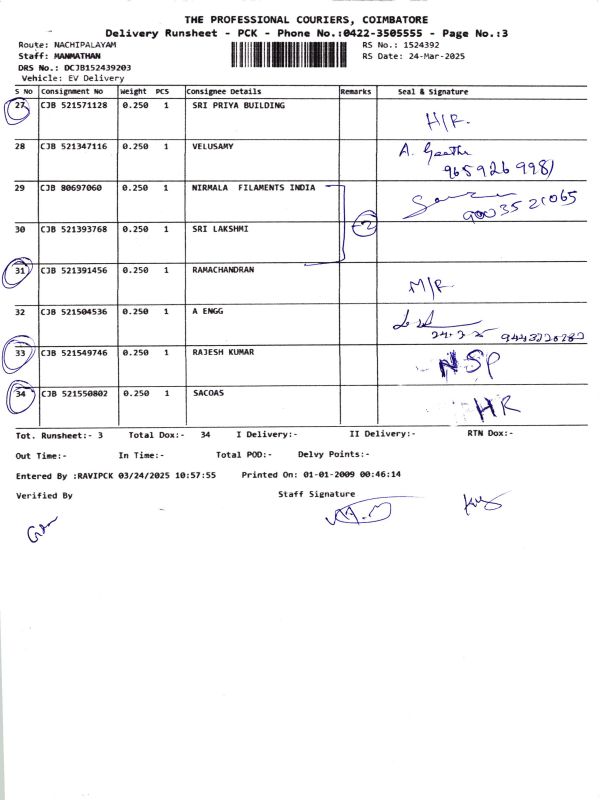 THE PROFESSIONAL COURIERS, COIMBATORE
Delivery Runsheet - PCK - Phone No.:0422-3505555 - Page No.:3
Route: NACHIPALAYAM RS No.: 1524392
Staff: MANMATHAN RS Date: 24-Mar-2025
DRS No.: DCJB152439203
Vehicle: EV Delivery
S No Consignment No Weight PCS Consignee Details Remarks Seal & Signature
27 CJB 521571128 0.250 1 SRI PRIYA BUILDING
H/R.
28 CJB 521347116 0.250 1 VELUSAMY A. Geetha
9659269981
29 CJB 80697060 0.250 1 NIRMALA FILAMENTS INDIA
9003521065
2
30 CJB 521393768 0.250 1 SRI LAKSHMI
31 CJB 521391456 0.250 1 RAMACHANDRAN
M/R
32 CJB 521504536 0.250 1 A ENGG
33 CJB 521549746 0.250 1 RAJESH KUMAR NSP
34 CJB 521550802 0.250 1 SACOAS HR
Tot. Runsheet:- 3 Total Dox:- 34 I Delivery:- II Delivery:- RTN Dox:-
Out Time:- In Time:- Total POD:- Delvy Points:-
Entered By :RAVIPCK 03/24/2025 10:57:55 Printed On: 01-01-2009 00:46:14
Verified By Staff Signature